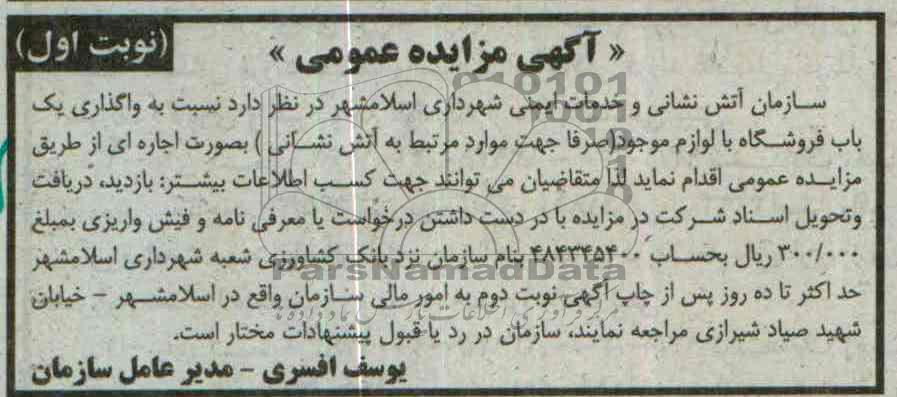 (نوبت اول)
« آگهی مزایده عمومی »
سازمان آتش نشانی و خدمات ایمنی شهرداری اسلامشهر در نظر دارد نسبت به واگذاری یک
باب فروشگاه با لوازم موجود(صرفا جهت موارد مرتبط به آتش نشانی ) بصورت اجاره ای از طریق
مزایده عمومی اقدام نماید لذا متقاضیان می توانند جهت کسب اطلاعات بیشتر: بازدید، دریافت
وتحویل اسناد شرکت در مزایده با در دست داشتن درخواست یا معرفی نامه و فیش واریزی بمبلغ
۳۰۰/۰۰۰ ریال بحساب ۴۸۴۳۴۵۴۰۰ بنام سازمان نزد بانک کشاورزی شعبه شهرداری اسلامشهر
حد اکثر تا ده روز پس از چاپ آگهی نوبت دوم به امور مالی سازمان واقع در اسلامشهر – خیابان
شهید صیاد شیرازی مراجعه نمایند، سازمان در رد یا قبول پیشنهادات مختار است.
یوسف افسری – مدیر عامل سازمان
ParsNamadData